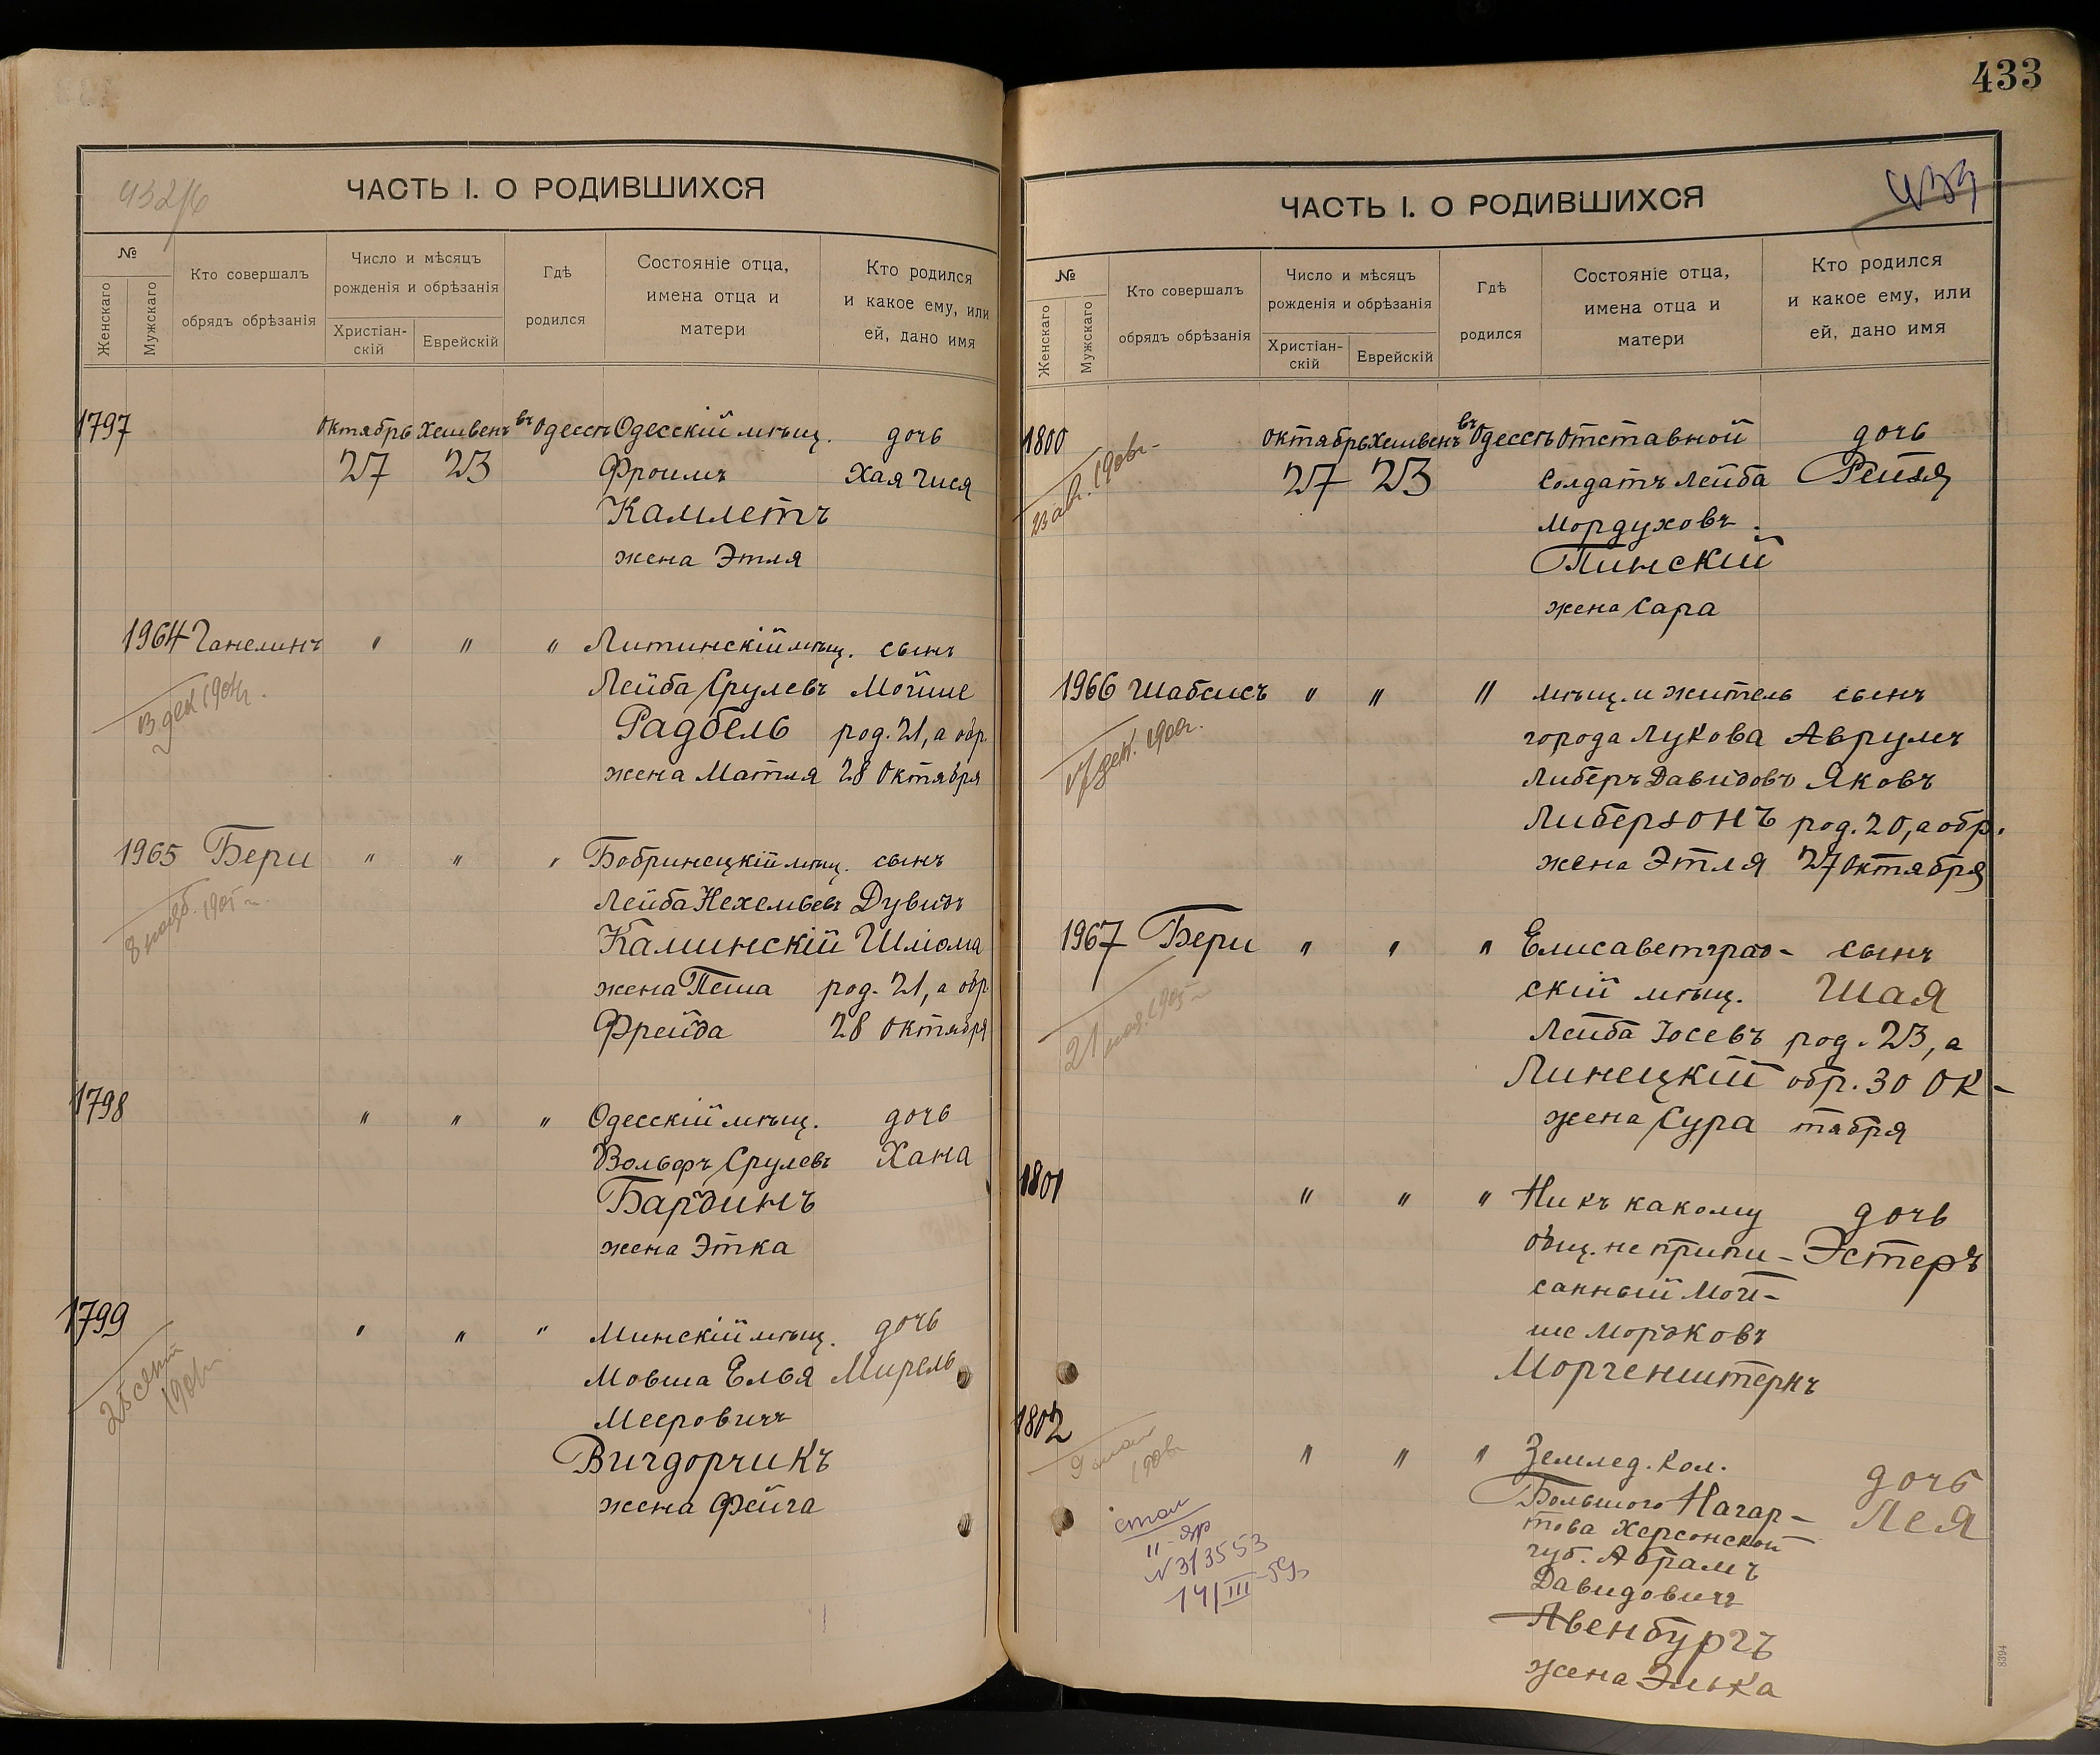 433
432/б
ЧАСТЬ I. О РОДИВШИХСЯ
№
Женскаго
Мужскаго
Кто совершалъ
обрядъ обрѣзанія
Число и мѣсяцъ
рожденія и обрѣзанія
Христіан-
скій
Еврейскій
Гдѣ
родился
Состояніе отца,
имена отца и
матери
Кто родился
и какое ему, или
ей, дано имя
1797 Октябрь Хешвенъ въ Одессѣ Одесскій мѣщ. дочь
27 23 Фроимъ Хая Чися
Камлетъ
жена Этля
1964 Ганелинъ " " " Литинскій мѣщ. сынъ
Лейба Срулевъ Мойше
Радбель род. 21, а обр.
жена Матля 28 Октября
13 дек 1904г.
1965 Бери " " " Бобринецкій мѣщ. сынъ
Лейба Нехемьевъ Дувидъ
Каминскій Шліома
жена Песша род. 21, а обр
Фрейда 28 Октября
8 нояб. 1905 г.
1798 " " " Одесскій мѣщ. дочь
Вольфъ Срулевъ Хана
Бардинъ
жена Этка
1799 " " " Минскій мѣщ. дочь
Мовша Елья Мирель
Мееровичъ
Вигдорчикъ
жена Фейга
25 сент
ЧАСТЬ I. О РОДИВШИХСЯ
№
Женскаго
Мужскаго
Кто совершалъ
обрядъ обрѣзанія
Число и мѣсяцъ
рожденія и обрѣзанія
Христіан-
скій
Еврейскій
Гдѣ
родился
Состояніе отца,
имена отца и
матери
Кто родился
и какое ему, или
ей, дано имя
1800 Октябрь Хешвенъ въ Одессѣ Отставной дочь
27 23 Солдатъ Лейба Рейзя
Мордуховъ
Пинскій
жена Сара
1966 Шабсисъ " " " мѣщ. и житель сынъ
города Лукова Аврумъ
Либеръ Давидовъ Яковъ
Либерзонъ род. 20, а обр.
жена Этля 27 Октября
1967 Бери " " " Елисаветград- сынъ
скій мѣщ. Шая
Лейба Іосевъ род. 23, а
Линецкій обр. 30 Ок-
жена Сура тября
1801 " " " Ни къ какому дочь
общ. не припи- Эстеръ
санный Мой-
ше Мордковъ
Моргенштернъ
1802 " " " Землед. Кол. дочь
Большого Нагар- Лея
това Херсонской
губ. Абрамъ
Давидовичъ
Авенбургъ
жена Элька
N313553
14/III-59г
8394